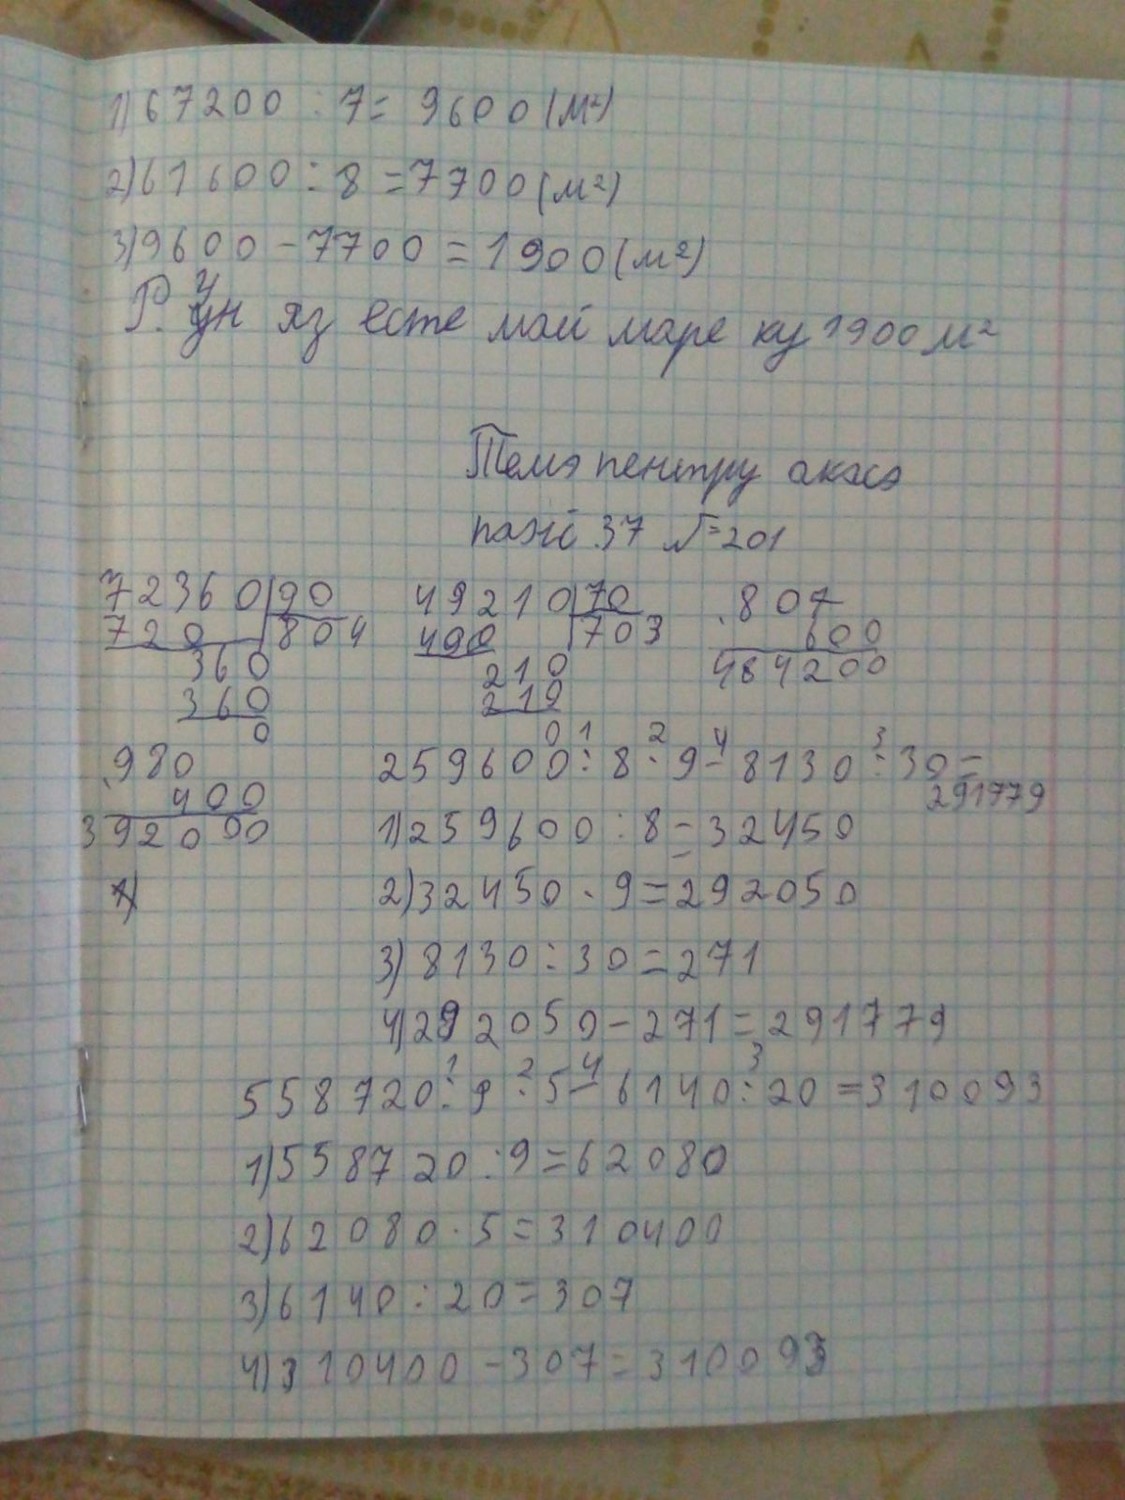 1) 67200 : 7 = 9600 (м²)
2) 61600 : 8 = 7700 (м²)
3) 9600 - 7700 = 1900 (м²)
Р. Ун яз есте май маре ку 1900 м²
Темэ пентру акасэ
паж 37 № 201
72360 | 90
720 | 804
360
360
0
49210 | 70
490 | 703
210
210
0
807
600
484200
980
400
392000
259600 : 8 · 9 - 8130 : 30 =
1 2 4 3
291779
1) 259600 : 8 = 32450
2) 32450 · 9 = 292050
3) 8130 : 30 = 271
4) 292050 - 271 = 291779
1 2 4 3
558720 : 9 · 5 - 6140 : 20 = 310093
1) 558720 : 9 = 62080
2) 62080 · 5 = 310400
3) 6140 : 20 = 307
4) 310400 - 307 = 310093